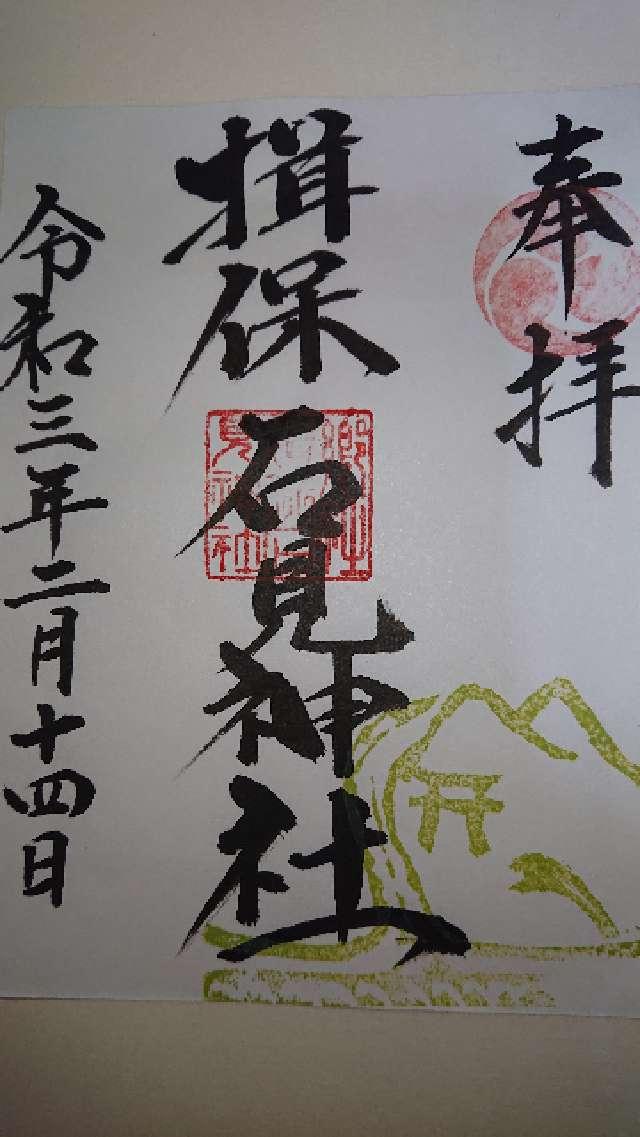 奉拝
揖保石見神社
令和三年二月十四日